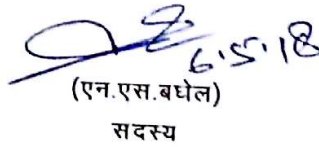 6.5.18
(एन.एस.बघेल)
सदस्य